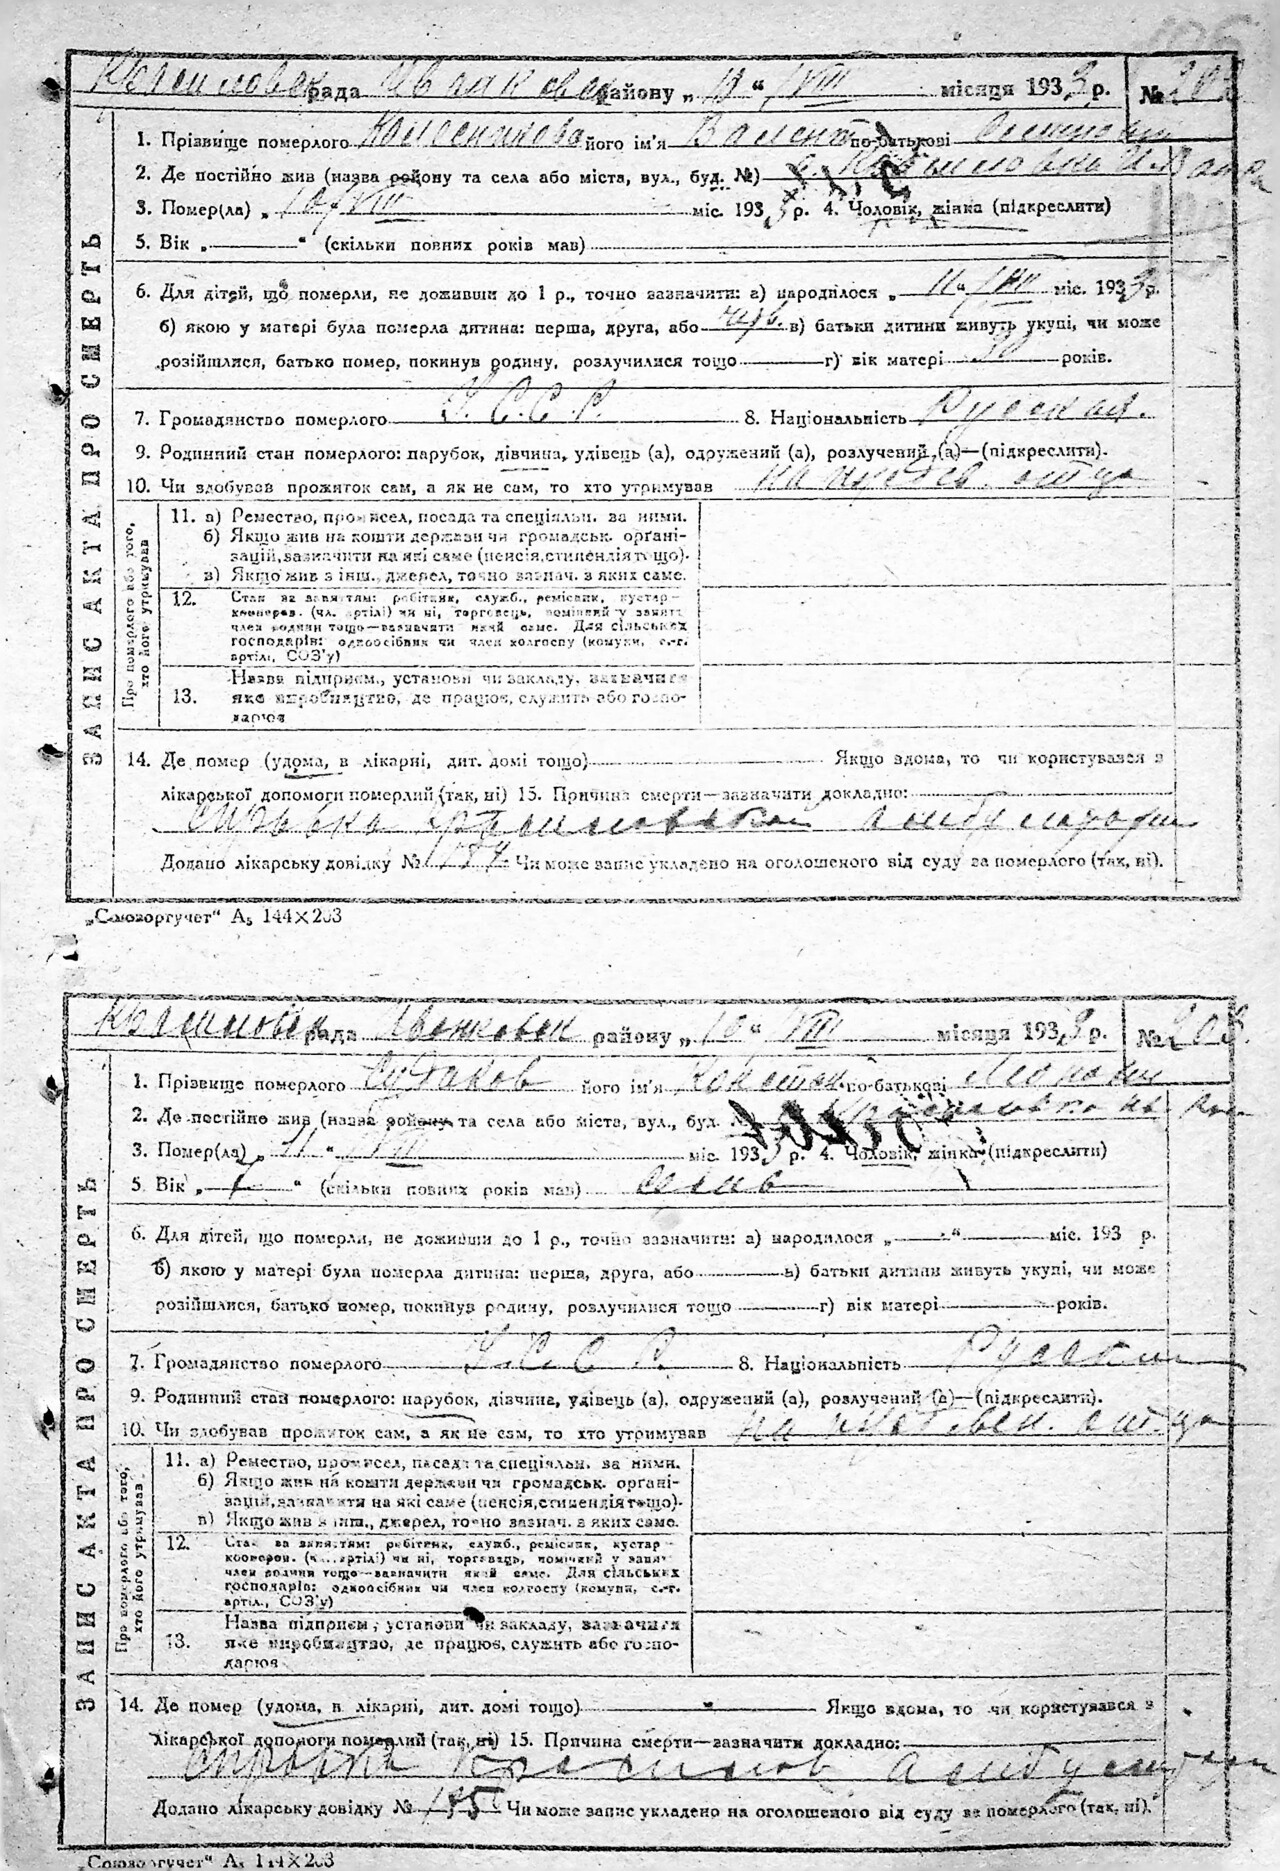 рада района „10“ VIII місяця 1933 р. №
1. Прізвище померлого його ім'я по-батькові
2. Де постійно жив (назва району та села або міста, вул., буд. №)
3. Помер(ла) „10“ VIII міс. 193 р. 4. Чоловік, жінка (підкреслити)
5. Вік „ “ (скільки повних років мав)
6. Для дітей, що померли, не доживши до 1 р., точно зазначити: а) народилося „11“ VIII міс. 1933 р.
б) якою у матері була померла дитина: перша, друга, або в) батьки дитини живуть укупі, чи може
розійшлися, батько помер, покинув родину, розлучилися тощо г) вік матері 30 років.
7. Громадянство померлого У.С.С.Р. 8. Національність Русская.
9. Родинний стан померлого: парубок, дівчина, удівець (а), одружений (а), розлучений (а)—(підкреслити).
10. Чи здобував прожиток сам, а як не сам, то хто утримував на иждев. отца
ЗАПИС АКТА ПРО СМЕРТЬ
Про померлого або того,
хто його утримував
11. а) Ремество, промисел, посада та спеціяльн. за ними.
б) Якщо жив на кошти держави чи громадськ. органі-
зацій, зазначити на які саме (пенсія, стипендія тощо).
в) Якщо жив з інш. джерел, точно зазнач. з яких саме.
12. Стан за заняттям: робітник, служб., ремісник, кустар-
кооперов. (чл. артілі) чи ні, торговець, помічний у занят.
член родини тощо—зазначити який саме. Для сільських
господарів: одноосібник чи член колгоспу (комуни, с.-г.
артілі, СОЗ'у)
13. Назва підприєм., установи чи закладу, зазначити
яке виробництво, де працює, служить або госпо-
дарює
14. Де помер (удома, в лікарні, дит. домі тощо) Якщо вдома, то чи користувався з
лікарської допомоги померлий (так, ні) 15. Причина смерти—зазначити докладно:
справка амбулатории
Додано лікарську довідку № 174 Чи може запис укладено на оголошеного від суду за померлого (так, ні).
„Союзоргучет“ А₅ 144×203
рада району „10“ VIII місяця 1933 р. № 208.
1. Прізвище померлого Судаков його ім'я по-батькові
2. Де постійно жив (назва району та села або міста, вул., буд.
3. Помер(ла) „11“ VIII міс. 193 р. 4. Чоловік, жінка (підкреслити)
5. Вік „7“ (скільки повних років мав) семь
6. Для дітей, що померли, не доживши до 1 р., точно зазначити: а) народилося „ “ міс. 193 р.
б) якою у матері була померла дитина: перша, друга, або в) батьки дитини живуть укупі, чи може
розійшлися, батько помер, покинув родину, розлучилися тощо г) вік матері років.
7. Громадянство померлого У.С.С.Р. 8. Національність Русский
9. Родинний стан померлого: парубок, дівчина, удівець (а), одружений (а), розлучений (а)—(підкреслити).
10. Чи здобував прожиток сам, а як не сам, то хто утримував на отца
ЗАПИС АКТА ПРО СМЕРТЬ
Про померлого або того,
хто його утримував
11. а) Ремество, промисел, посада та спеціяльн. за ними.
б) Якщо жив на кошти держави чи громадськ. органі-
зацій, зазначити на які саме (пенсія, стипендія тощо).
в) Якщо жив з інш., джерел, точно зазнач. з яких саме.
12. Стан за заняттям: робітник, служб., ремісник, кустар-
кооперов. (чл. артілі) чи ні, торговець, помічний у занят.
член родини тощо—зазначити який саме. Для сільських
господарів: одноосібник чи член колгоспу (комуни, с.-г.
артіл., СОЗ'у)
13. Назва підприєм., установи чи закладу, зазначити
яке виробництво, де працює, служить або госпо-
дарює
14. Де помер (удома, в лікарні, дит. домі тощо) Якщо вдома, то чи користувався з
лікарської допомоги померлий (так, ні) 15. Причина смерти—зазначити докладно:
справка
Додано лікарську довідку № 175 Чи може запис укладено на оголошеного від суду за померлого (так, ні).
„Союзоргучет“ А₅ 144×203